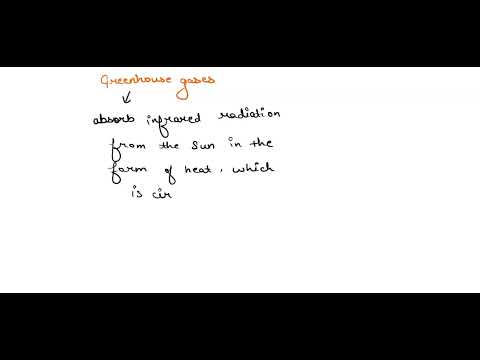 Greenhouse gases
absorb infrared radiation
from the Sun in the
form of heat, which
is cir